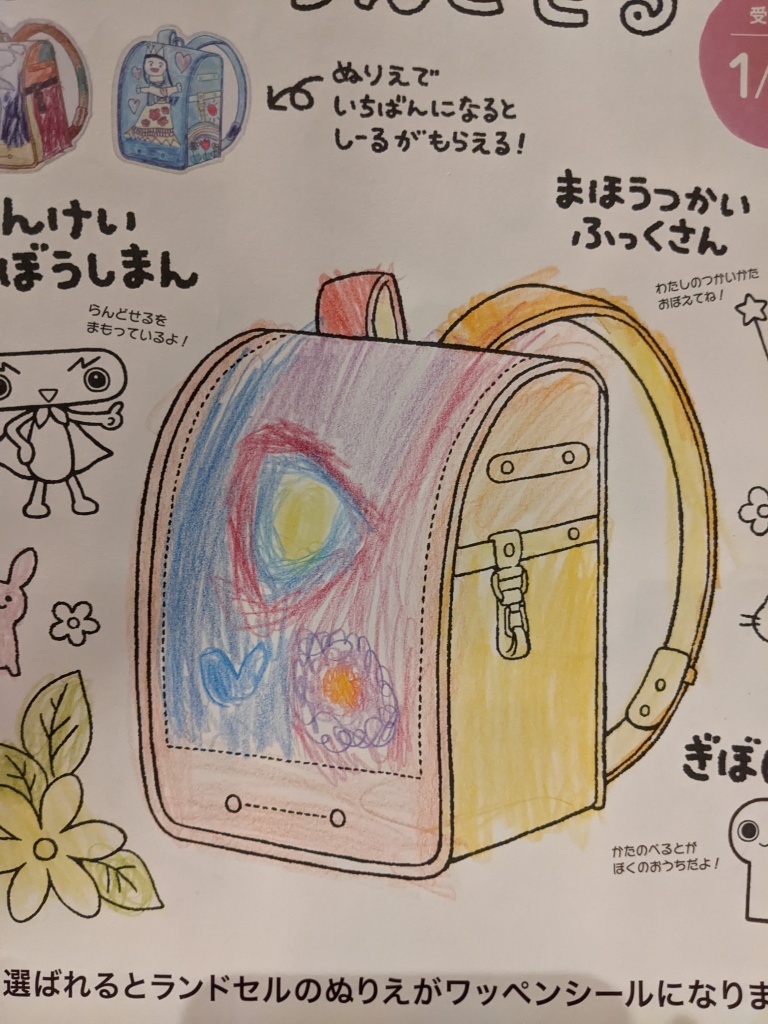 らんどせる
受
1/
ぬりえで
いちばんになると
しーるがもらえる!
まほうつかい
ふっくさん
わたしのつかいかた
おぼえてね!
んけい
ぼうしまん
らんどせるを
まもっているよ!
ぎぼ
かたのべるとが
ぼくのおうちだよ!
選ばれるとランドセルのぬりえがワッペンシールになりま